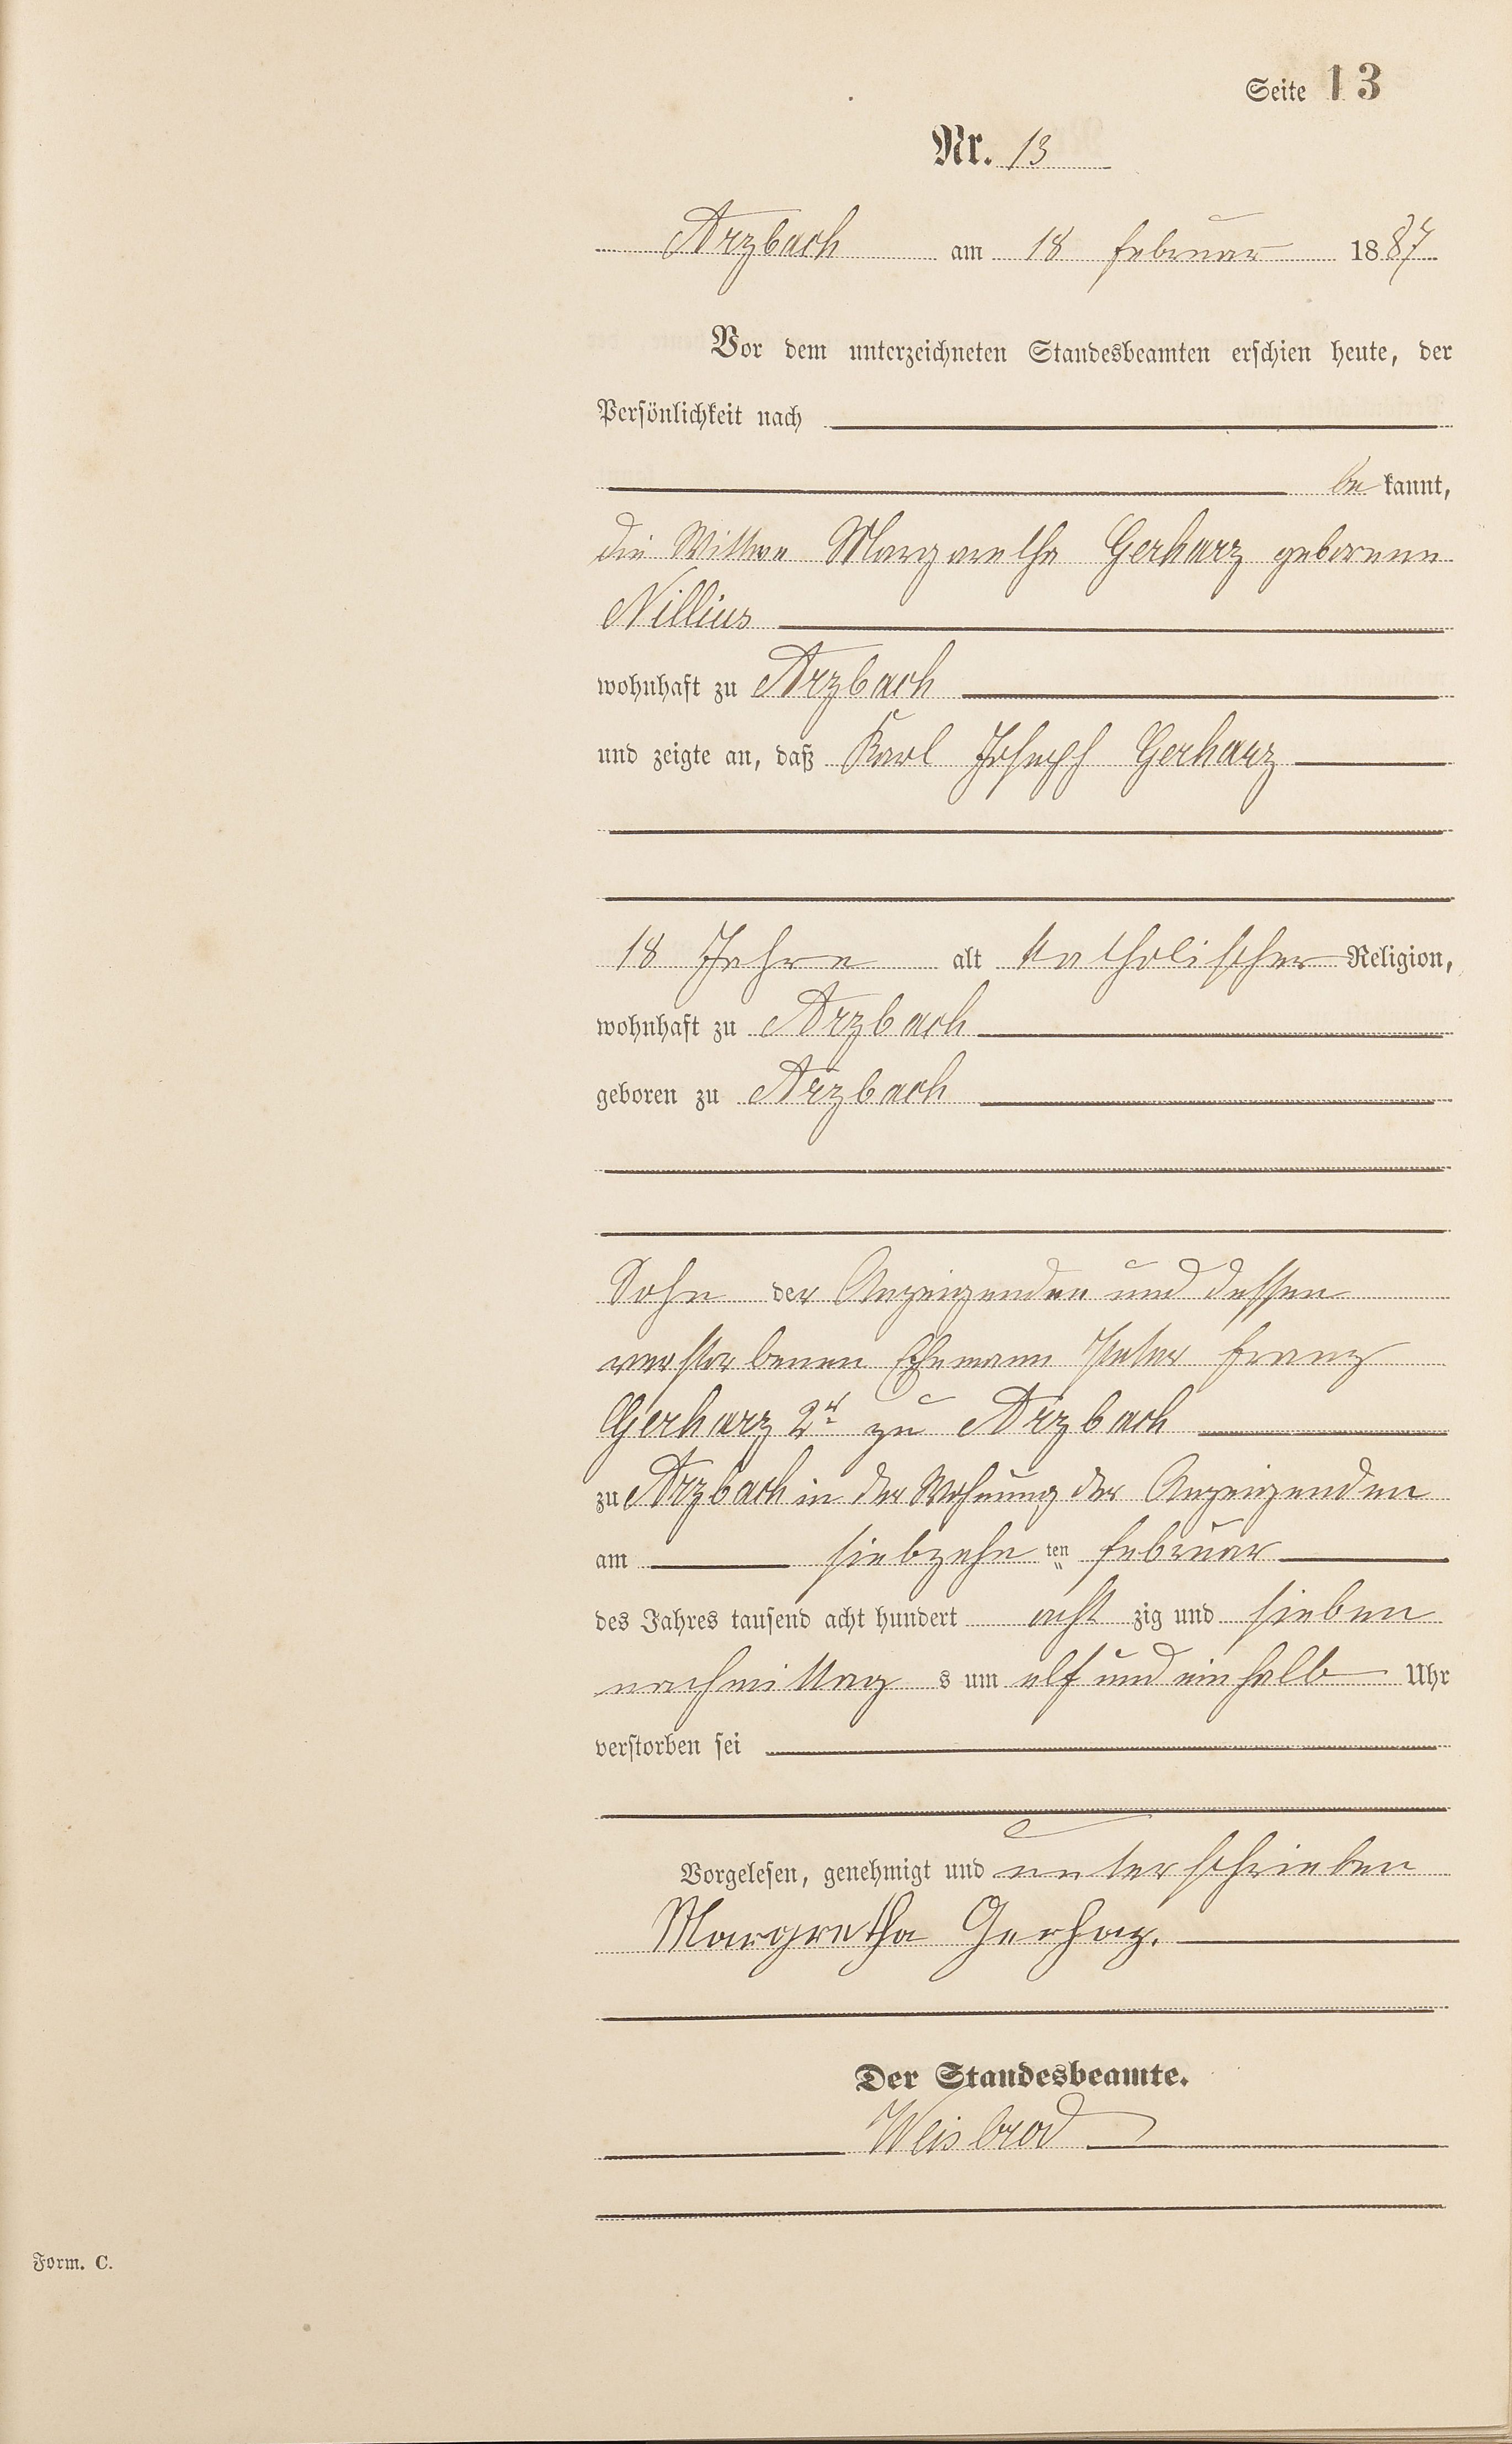 Seite 13
Nr. 13
Arzbach am 18 Februar 1887
Vor dem unterzeichneten Standesbeamten erschien heute, der
Persönlichkeit nach
bekannt,
die Wittwe Margaretha Gerharz geborene
Nillius
wohnhaft zu Arzbach
und zeigte an, daß Karl Joseph Gerharz
18 Jahre alt katholischer Religion,
wohnhaft zu Arzbach
geboren zu Arzbach
Sohn der Anzeigenden und dessen
verstorbenen Ehemann Peter Franz
Gerharz 2r zu Arzbach
zu Arzbach in der Wohnung der Anzeigenden
am siebzehn ten Februar
des Jahres tausend acht hundert acht zig und sieben
nachmittag s um elf und ein halb Uhr
verstorben sei
Vorgelesen, genehmigt und unterschrieben
Margretha Gerhaz.
Der Standesbeamte.
Weisbrod
Form. C.